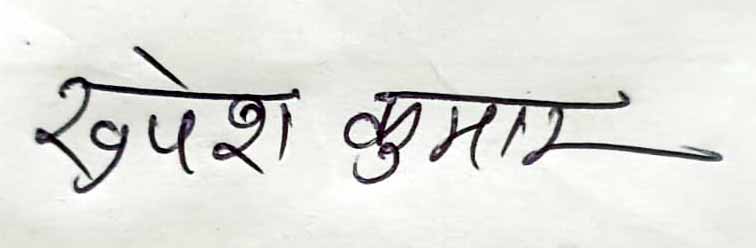 रुपेश कुमार